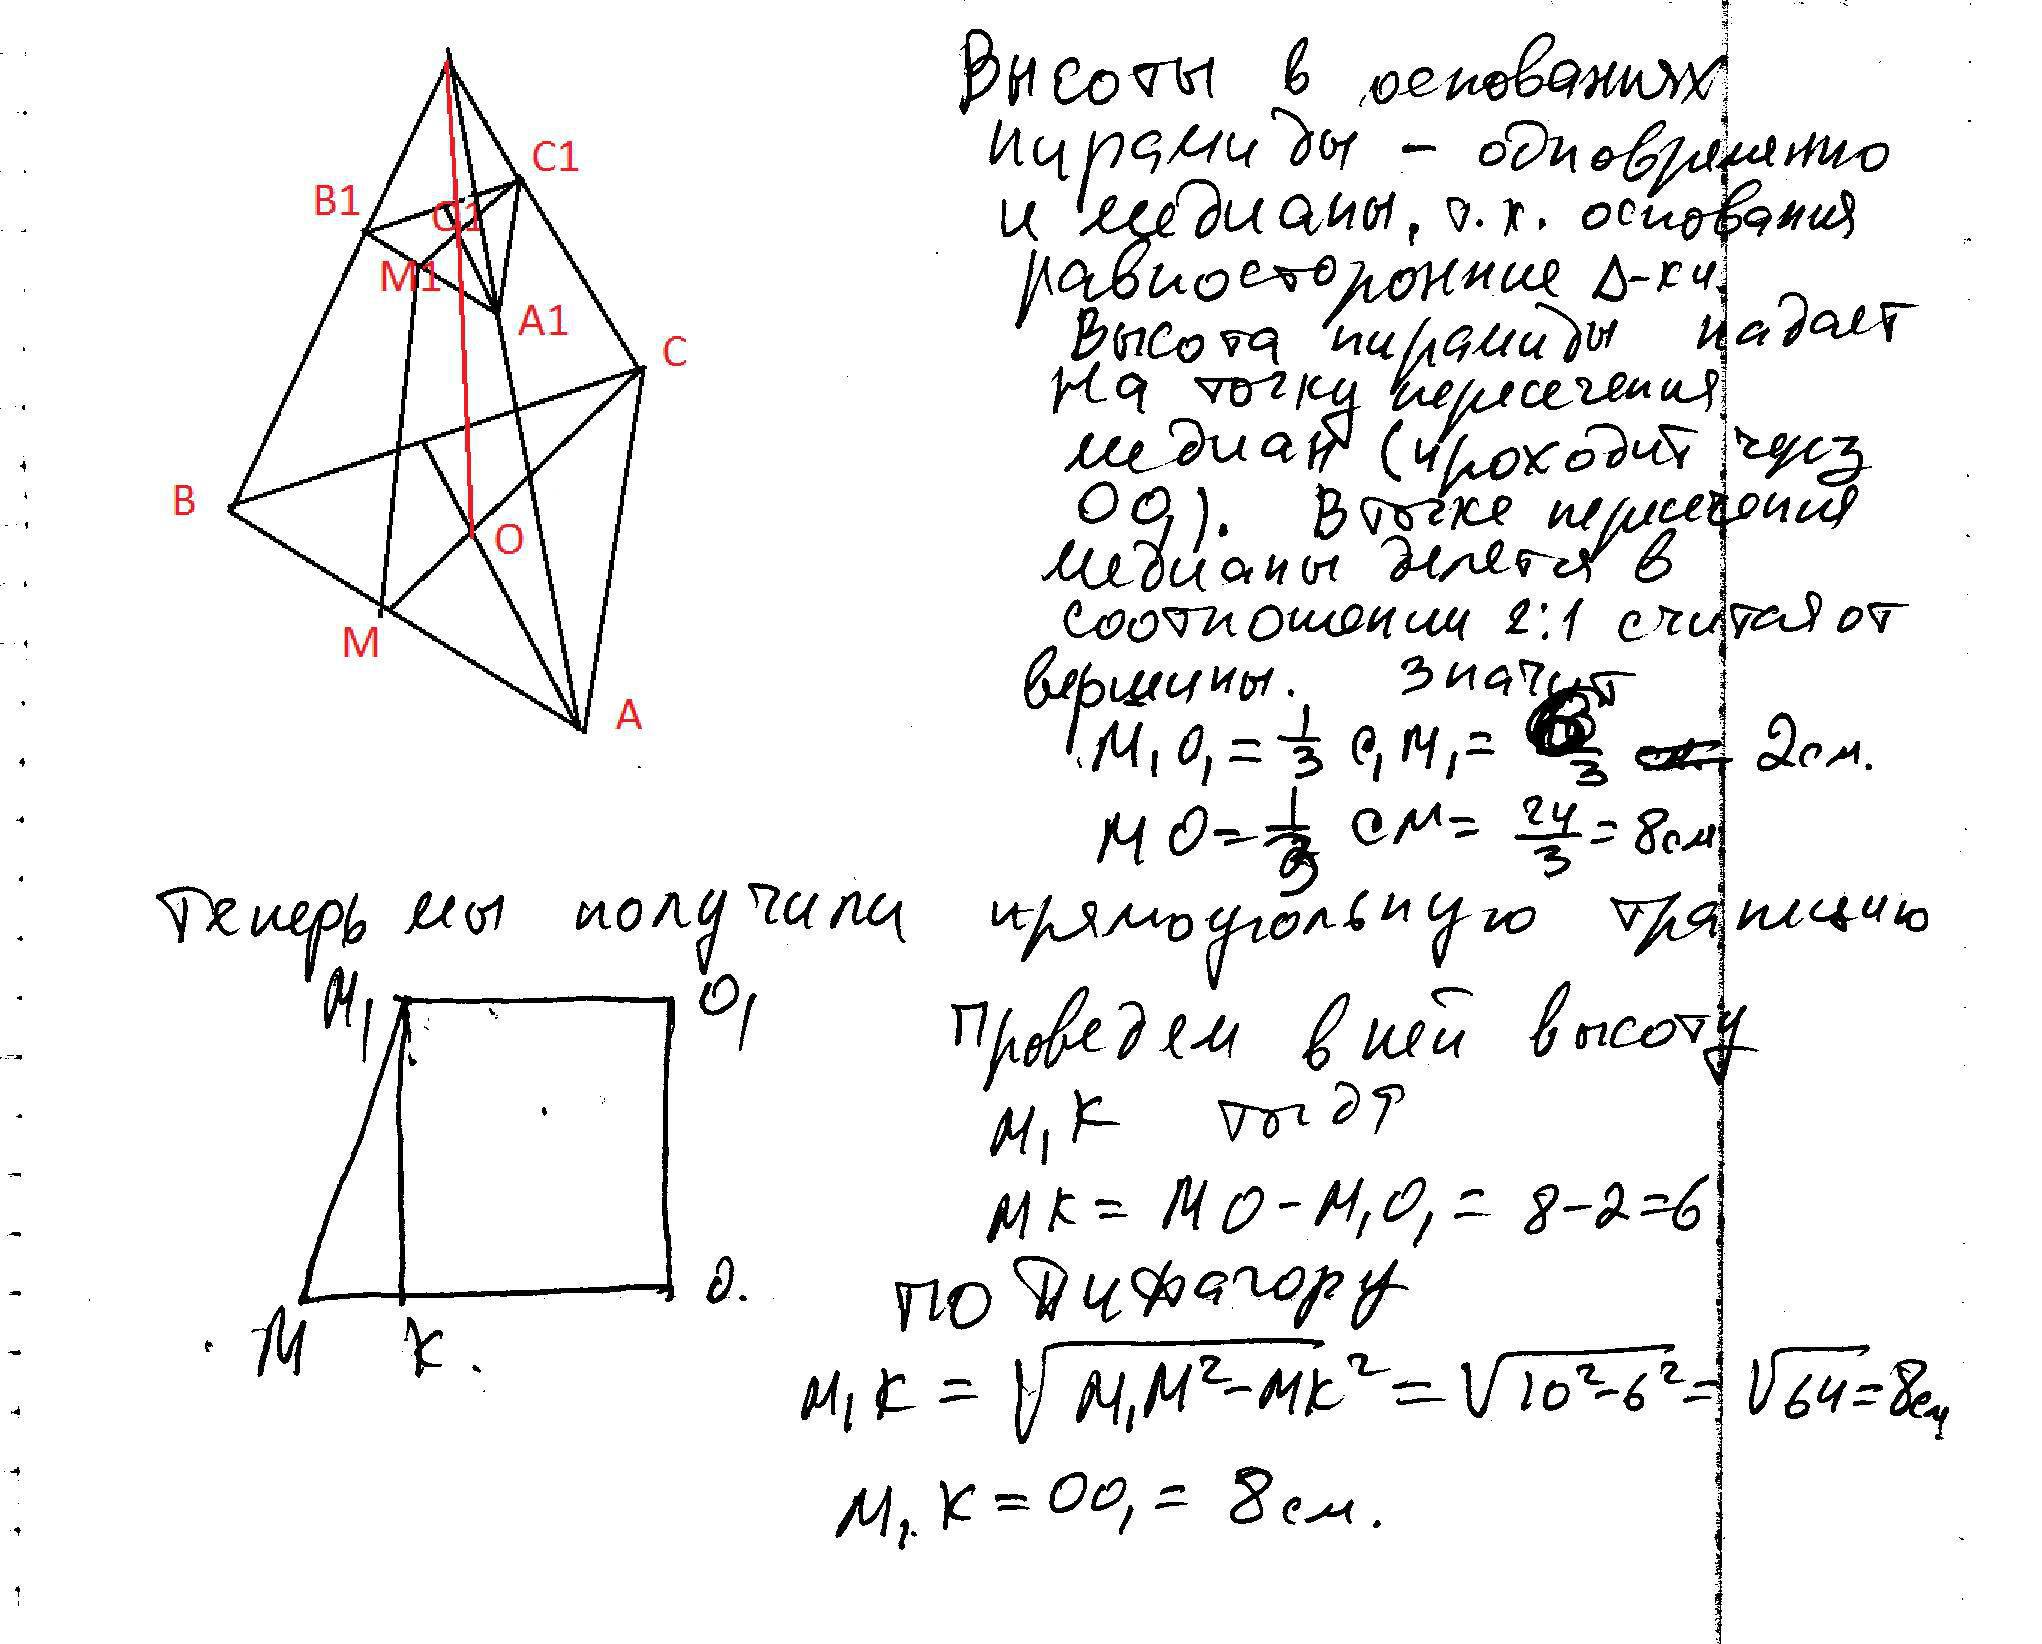 C1
B1
O1
M1
A1
C
B
O
M
A
Высоты в основаниях
пирамиды - одновременно
и медианы, т.к. основания
равносторонние Δ-ки.
Высота пирамиды падает
на точку пересечения
медиан (проходит через
OO₁). В точке пересечения
медианы делятся в
соотношении 2:1 считая от
вершины. Значит
M₁O₁ = 1/3 C₁M₁ = 6/3 2см.
MO = 1/3 CM = 24/3 = 8см
Теперь мы получили прямоугольную трапецию
M₁ O₁
Проведем в ней высоту
M₁K тогда
MK = MO - M₁O₁ = 8-2=6
O.
по Пифагору
M K.
M₁K = √M₁M²-MK² = √10²-6² = √64 = 8см
M₁K = OO₁ = 8см.